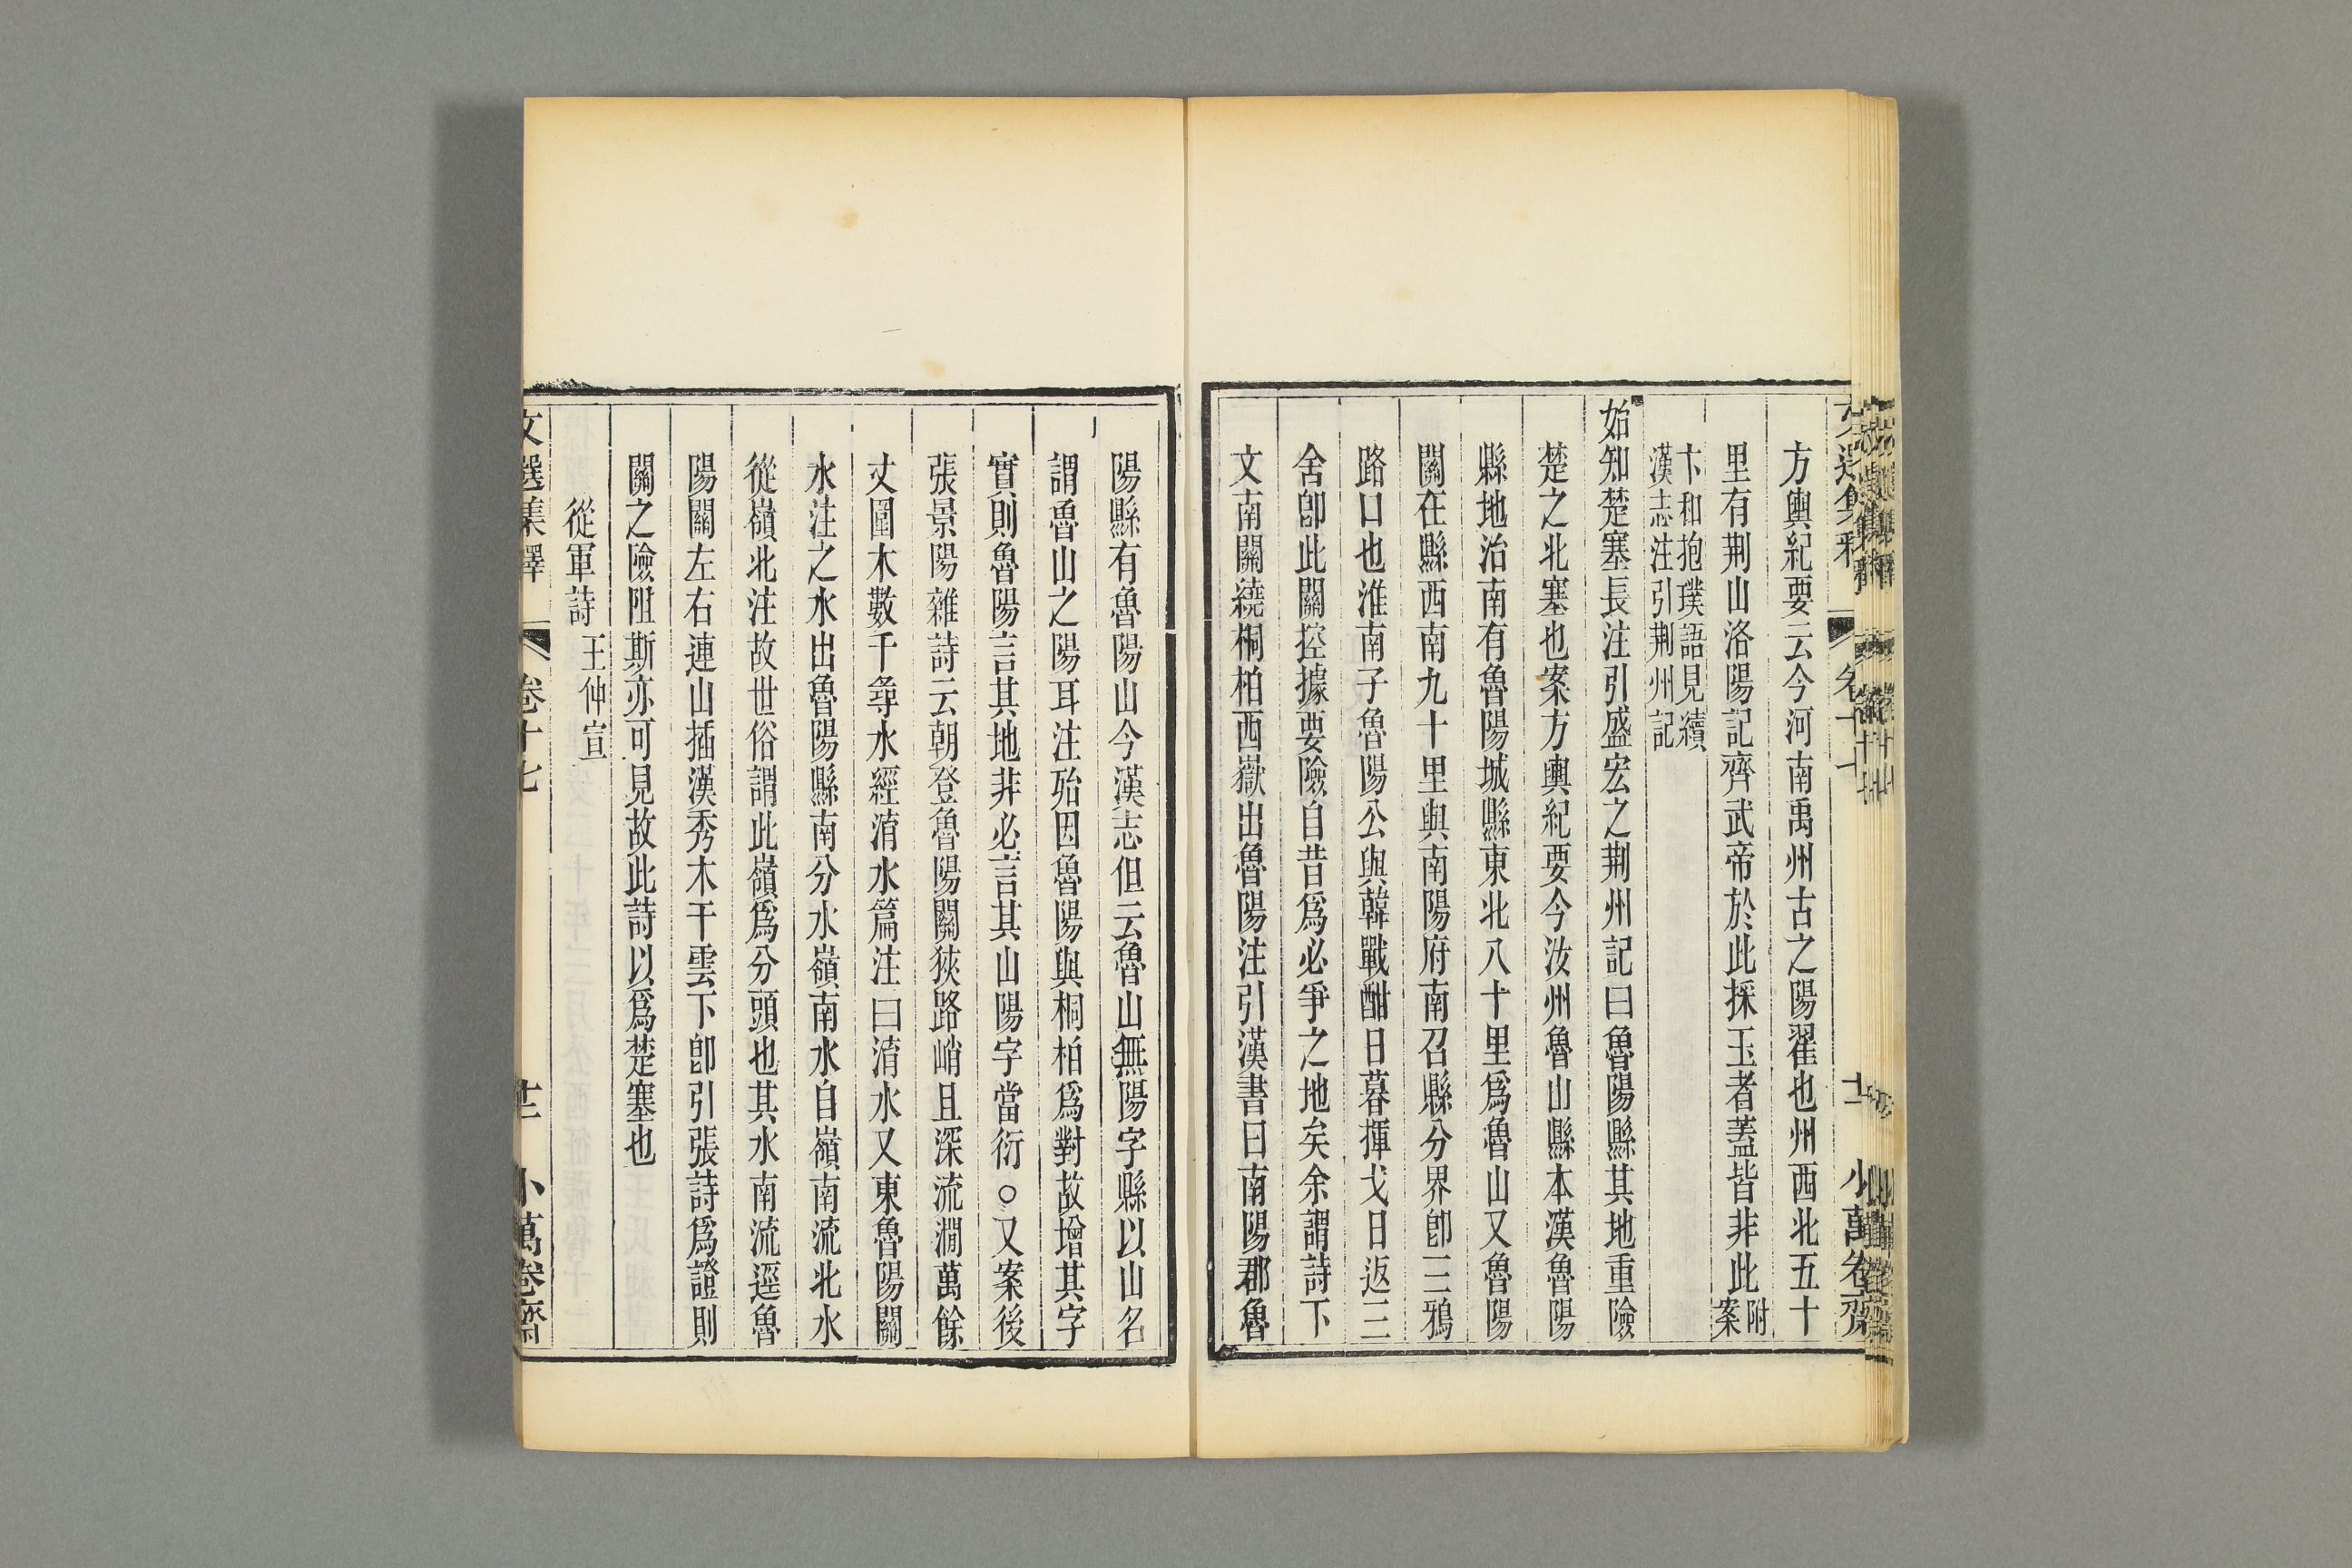 方輿紀要云今河南禹州古之陽翟也州西北五十
里有荆山洛陽記齊武帝於此採玉者蓋皆非此附案
卞和抱璞語見續
漢志注引荆州記
始知楚塞長注引盛宏之荆州記曰魯陽縣其地重險
楚之北塞也案方輿紀要今汝州魯山縣本漢魯陽
縣地治南有魯陽城縣東北八十里爲魯山又魯陽
關在縣西南九十里與南陽府南召縣分界卽三鴉
路口也淮南子魯陽公與韓戰酣日暮揮戈日返三
舍卽此關控據要險自昔爲必爭之地矣余謂詩下
文南關繞桐柏西嶽出魯陽注引漢書曰南陽郡魯
陽縣有魯陽山今漢志但云魯山無陽字縣以山名
謂魯山之陽耳注殆因魯陽與桐柏爲對故增其字
實則魯陽言其地非必言其山陽字當衍○又案後
張景陽雜詩云朝登魯陽關狹路峭且深流澗萬餘
丈圍木數千尋水經淯水篇注曰淯水又東魯陽關
水注之水出魯陽縣南分水嶺南水自嶺南流北水
從嶺北注故世俗謂此嶺爲分頭也其水南流逕魯
陽關左右連山插漢秀木干雲下卽引張詩爲證則
關之險阻斯亦可見故此詩以爲楚塞也
從軍詩 王仲宣
文選集釋 卷十七 十二 小萬卷齋